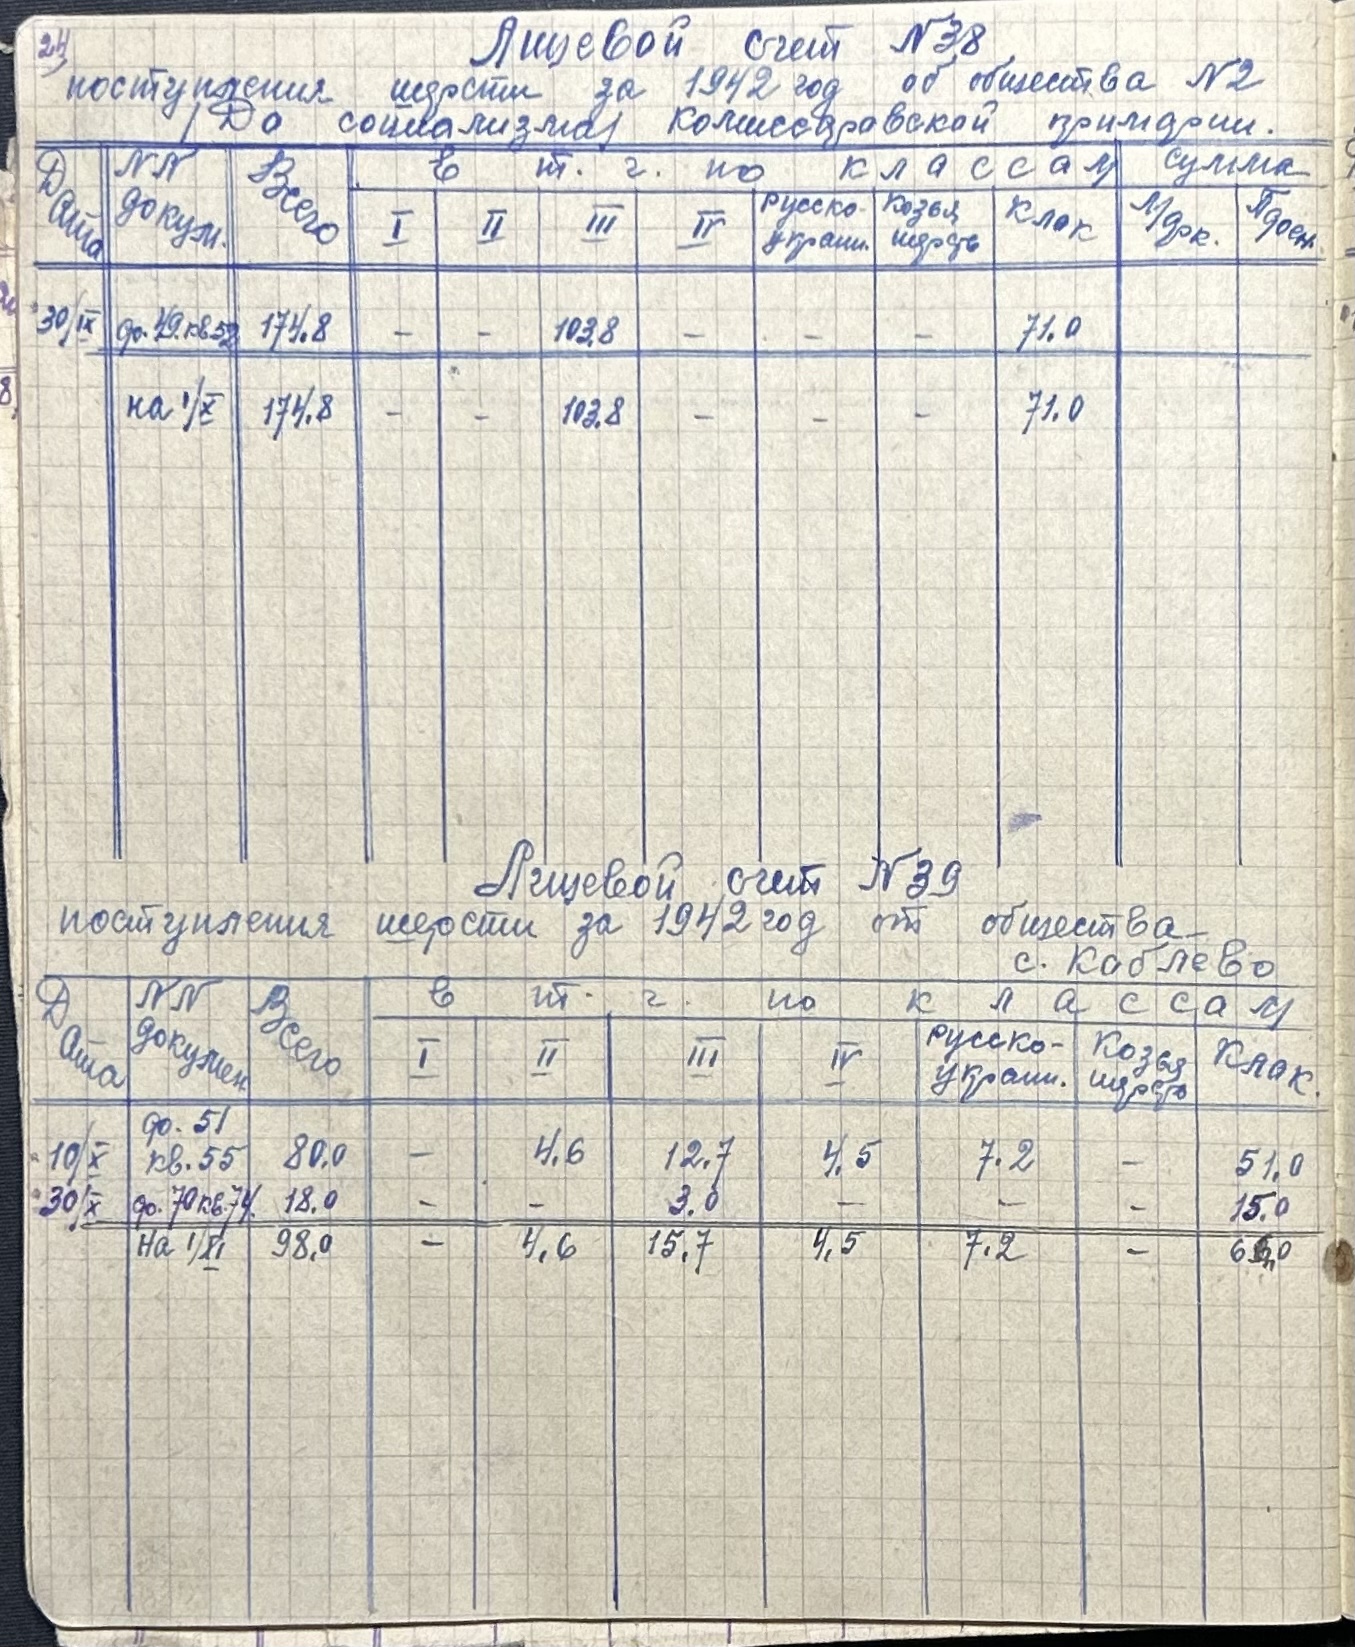 24
Лицевой счет N38
поступления шерсти за 1942 год об общества N2
/До социализма/ Комиссаровской примарии.
Дата NN докум. Всего в т. ч. по классам сумма
I II III IV Русско-украин. Козья шерсть Клак
30/IX ф. 49. кв 52 174.8 – – 103.8 – – – 71.0
на 1/X 174.8 – – 103.8 – – – 71.0
Лицевой счет N39
поступления шерсти за 1942 год от общества
с. Каблево
Дата NN докумен Всего в т. ч. по классам
I II III IV Русско-украин. Козья шерсть Клак.
ф. 51
10/X кв. 55 80.0 – 4.6 12.7 4.5 7.2 – 51.0
30/X ф. 70 кв. 74. 18.0 – – 3.0 – – – 15.0
на 1/XI 98.0 – 4.6 15.7 4.5 7.2 – 66.0